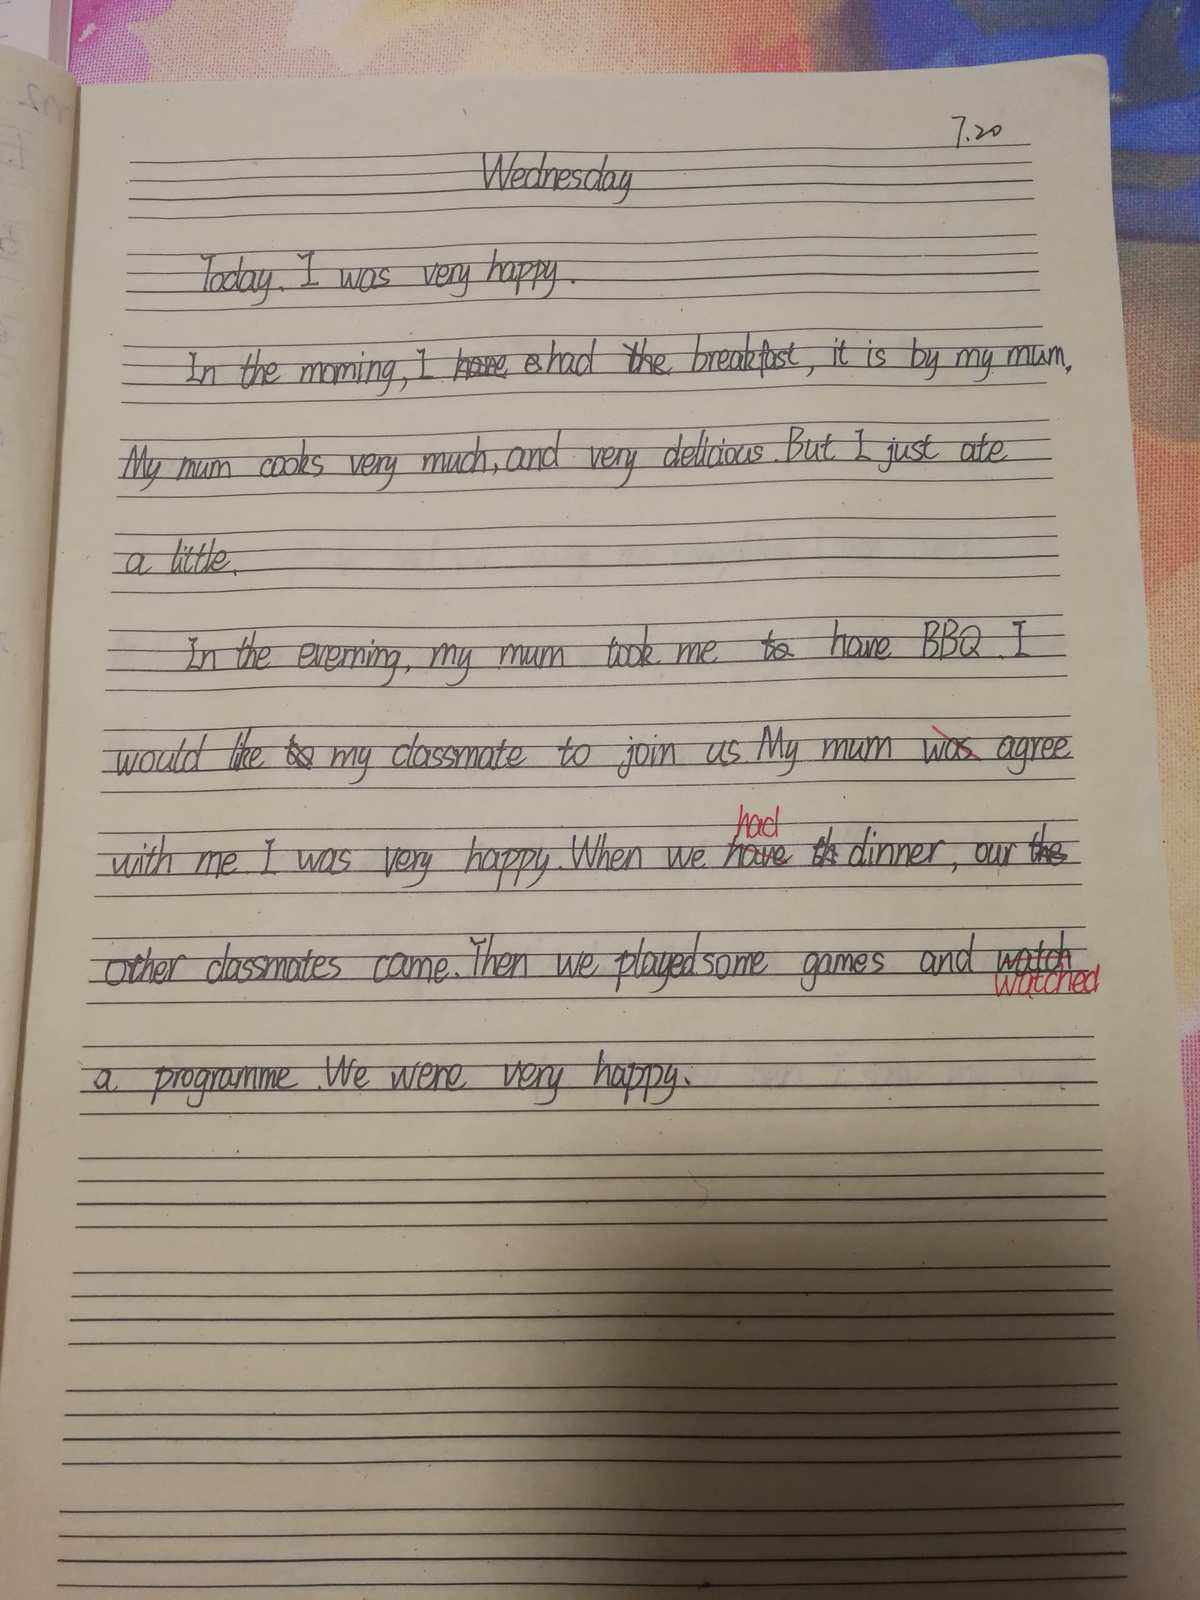 7.20
Wednesday
Today. I was very happy.
In the morning, I had breakfast, it is by my mum,
My mum cooks very much, and very delicious. But I just ate
a little.
In the everning, my mum took me to have BBQ. I
would like my classmate to join us. My mum was agree
with me. I was very happy. When we have dinner, our
had
other classmates came. Then we played some games and watch
watched
a programme. We were very happy.